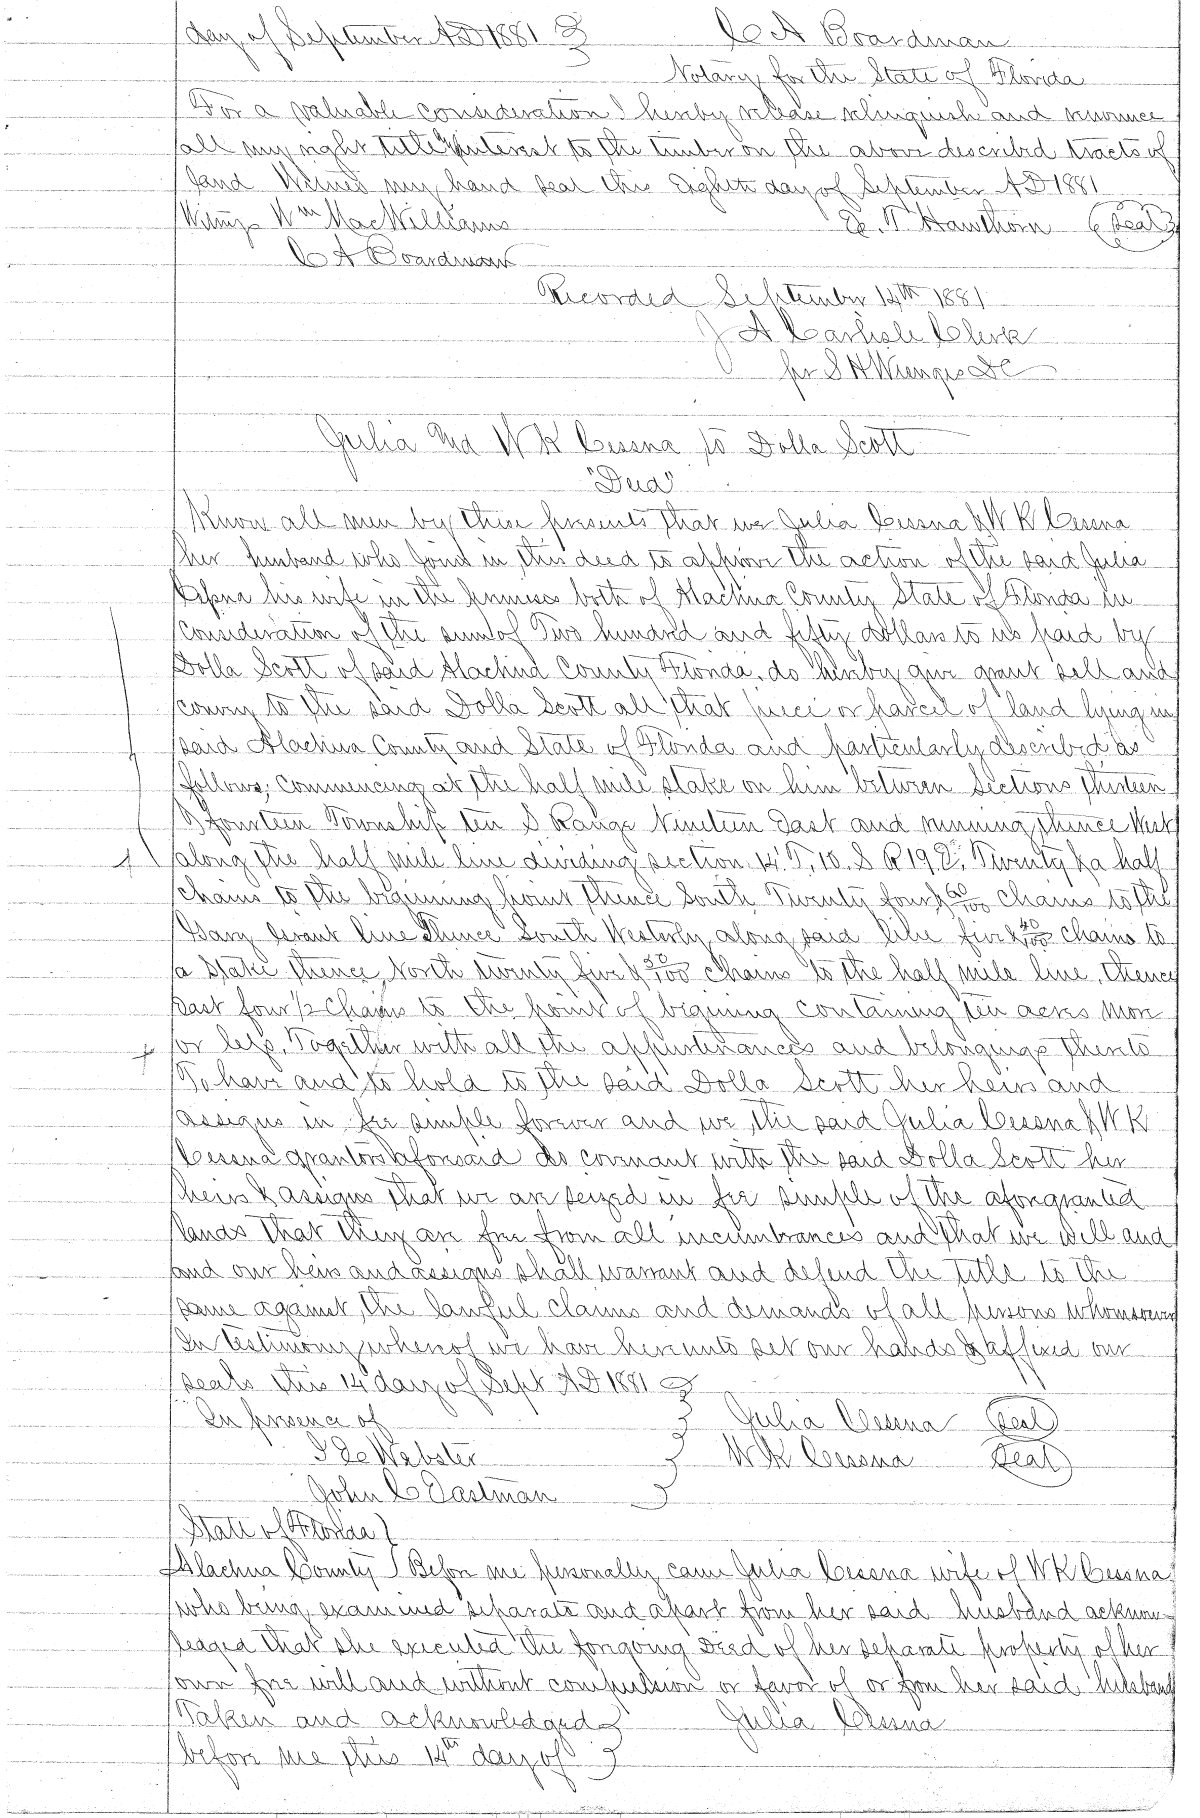 day of September AD 1881 C A Boardman
Notary for the State of Florida
For a valuable consideration I hereby release relinquish and renounce
all my right title & interest to the timber on the above described tracts of
land Witness my hand seal this Eighth day of September AD 1881
Witness Wm MacWilliams E. T Hawthorn (seal)
C A Boardman
Recorded September 14th 1881
J A Carlisle Clerk
per S H Wienges DC
Julia and W K Cessna to Dolla Scott
"Deed"
Know all men by these presents that we Julia Cessna & W K Cessna
her husband who joins in this deed to approve the action of the said Julia
Cessna his wife in the premises both of Alachua County State of Florida in
consideration of the sum of Two hundred and fifty dollars to us paid by
Dolla Scott of said Alachua County Florida, do hereby give grant sell and
convey to the said Dolla Scott all that piece or parcel of land lying in
said Alachua County and State of Florida and particularly described as
follows; commencing at the half mile stake on line between Sections thirteen
& fourteen Township ten S Range Nineteen East and running thence West
along the half mile line dividing section 14 T, 10. S R 19 E. Twenty & a half
chains to the beginning point thence South Twenty four & 60/100 chains to the
Gary Grant line Thence South Westerly along said line five & 40/100 chains to
a stake thence North twenty five & 50/100 chains to the half mile line, thence
East four 1/2 chains to the point of begining containing ten acres more
or less. Together with all the appurtenances and belongings thereto
To have and to hold to the said Dolla Scott her heirs and
assigns in fee simple forever and we the said Julia Cessna & W K
Cessna grantors aforesaid do covenant with the said Dolla Scott her
heirs & assigns that we are seized in fee simple of the aforgranted
lands that they are free from all incumbrances and that we will and
and our heirs and assigns shall warrant and defend the title to the
same against the lawful claims and demands of all persons whomsoever
In testimony whereof we have hereunto set our hands & affixed our
seals this 14 day of Sept AD 1881
In presence of Julia Cessna (seal)
Webster W K Cessna (seal)
John C Eastman
State of Florida
Alachua County Before me personally came Julia Cessna wife of W K Cessna
who being examined separate and apart from her said husband acknow-
ledged that she executed the forgoing Deed of her separate property of her
own free will and without compulsion or favor of or from her said husband
Taken and acknowledged Julia Cessna
before me this 14th day of